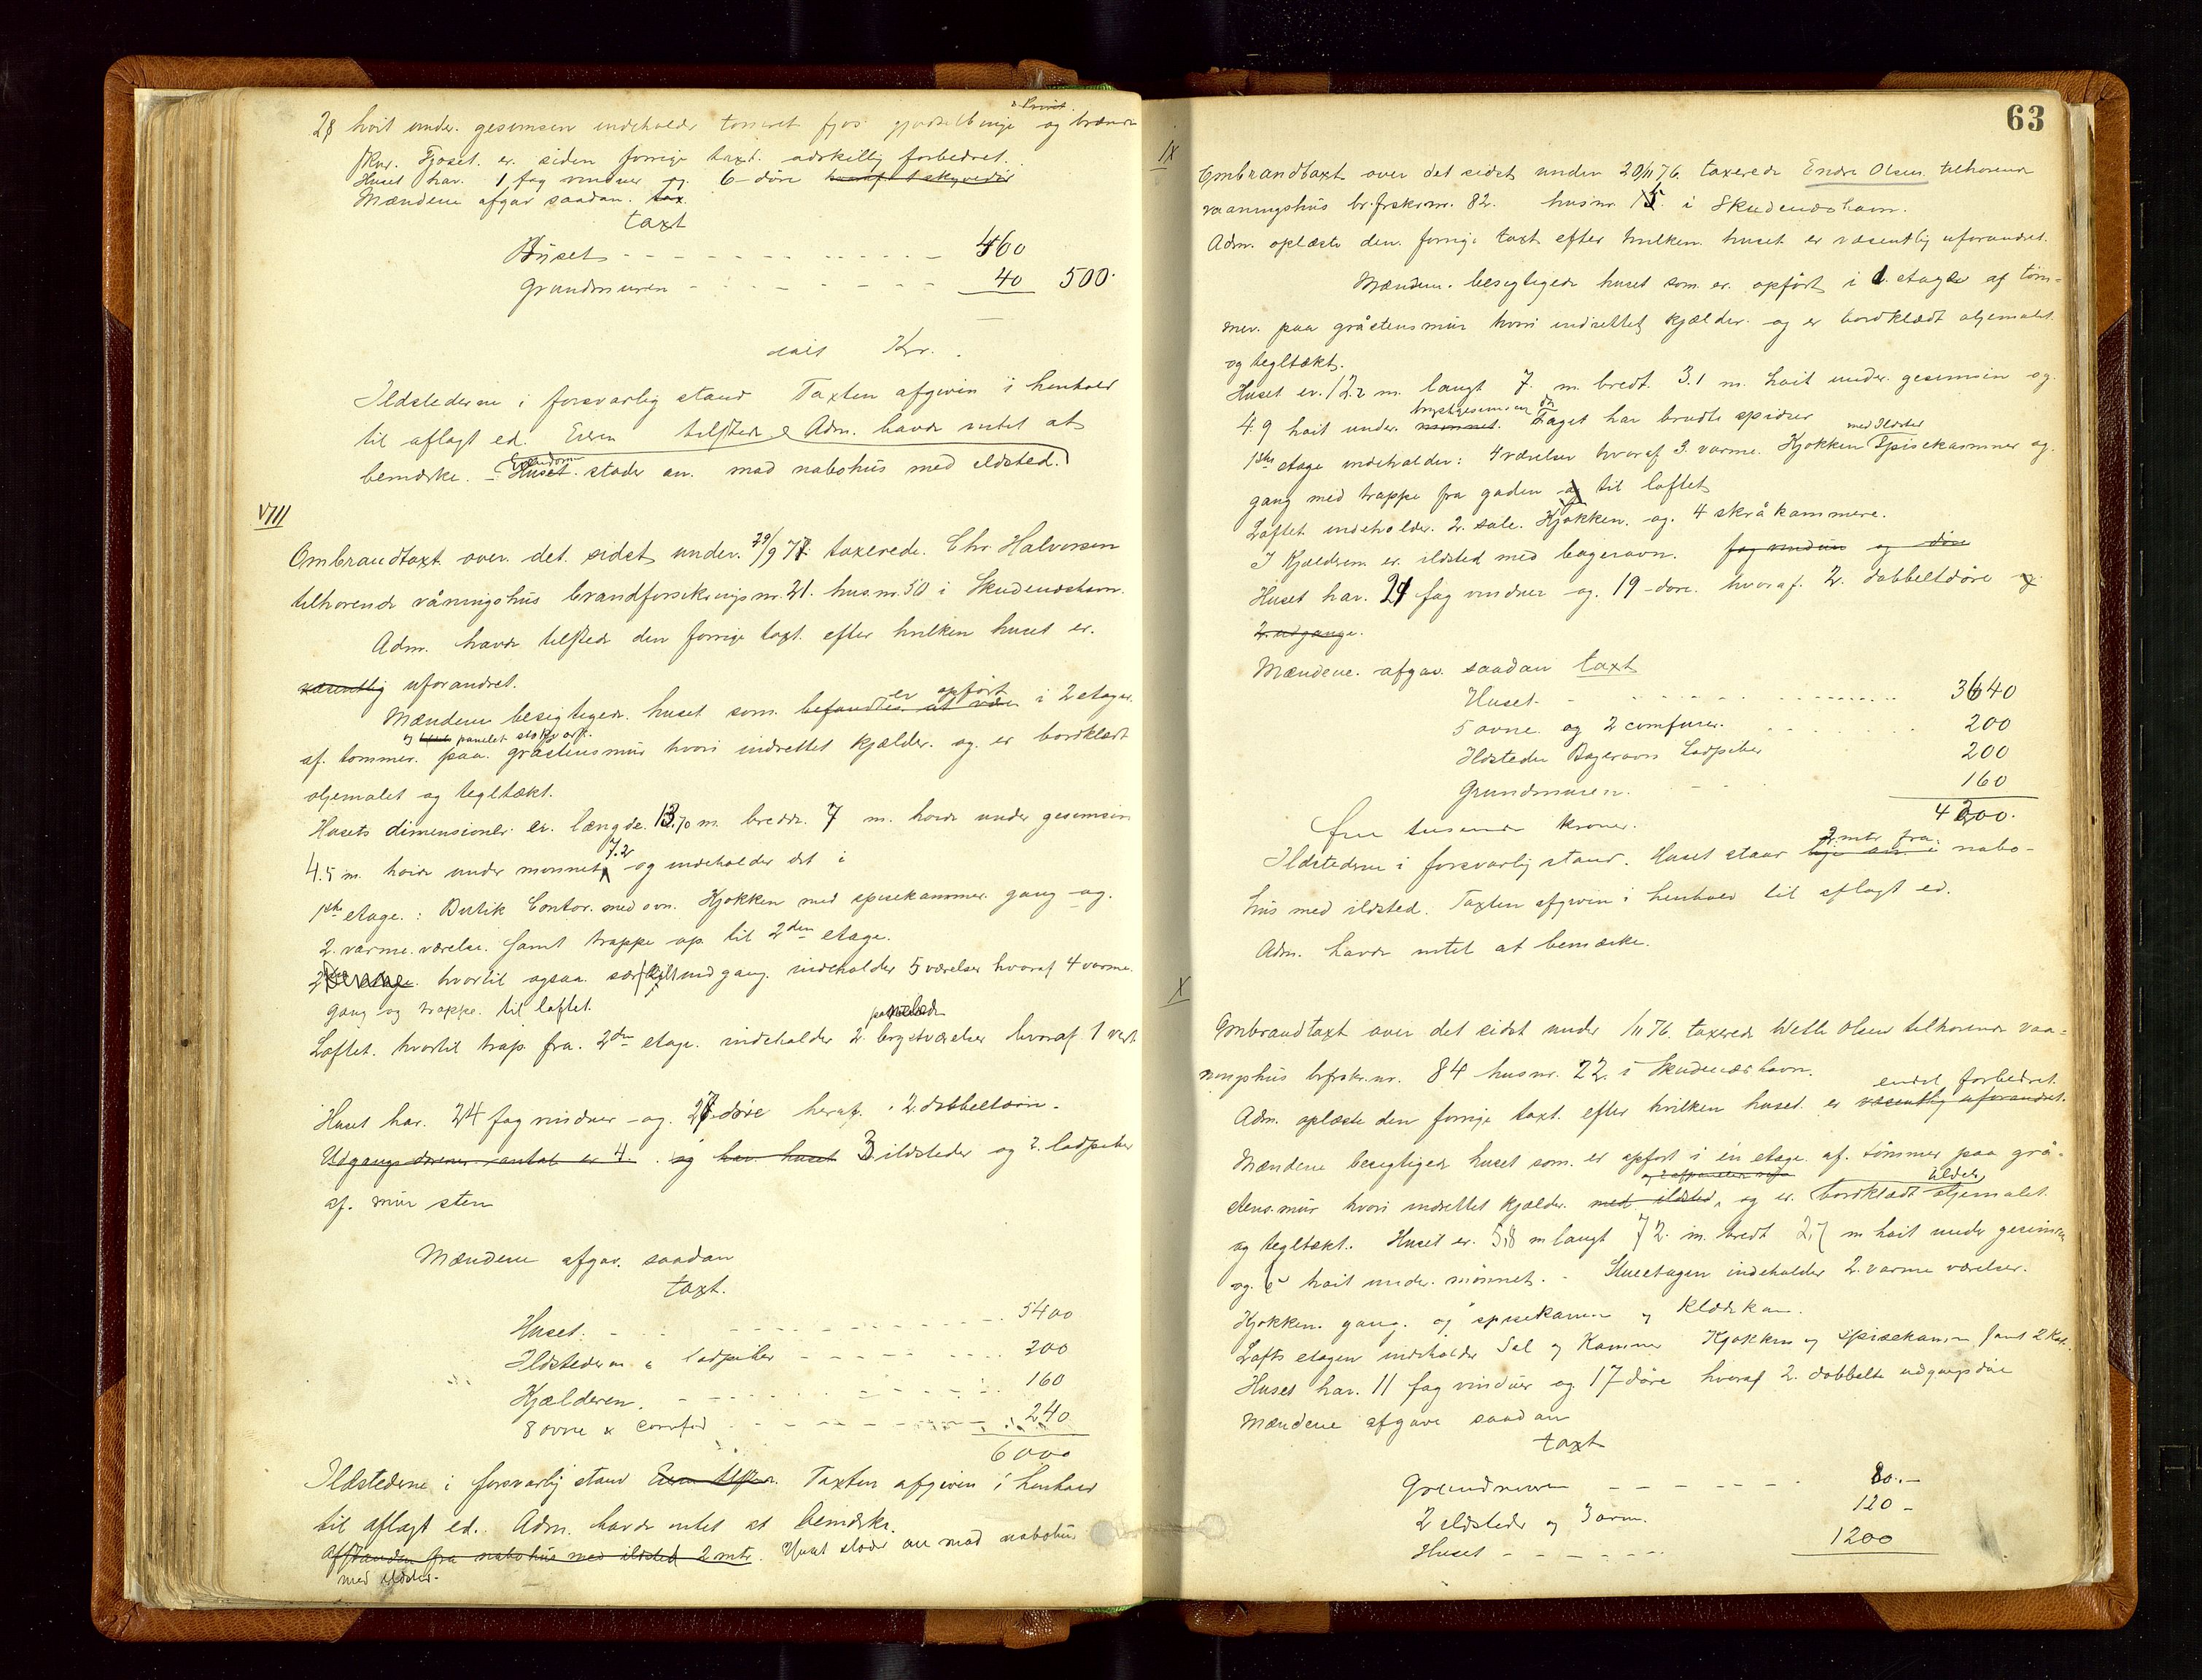 28 høit under gesimsen indeholder tørreret fjøs gjødselbinge og brænde
skur. Fjøset er siden forrige taxt adskillig forbedret.
Huset har 1 fag vinduer og 6 døre hvoraf 1 skyvedør
Mændene afgav saadan tax
taxt
Huset 460
Grundmuren 40 500.
Kr.
Ildstederne i forsvarlig stand Taxten afgiven i henhold
til aflagt ed. Eieren tilstede & Adm. havde intet at
bemærke. Huset støder an mod nabohus med ildsted.
VIII
Ombrandtaxt over det sidst under 29/9 77 taxerede Chr. Halvorsen
tilhørende våningshus brandforsikringsnr. 21. hus.nr. 50 i Skudeneshavn.
Adm. havde tilstede den forrige taxt efter hvilken huset er
væsentlig uforandret.
er opført
Mændene besigtigede huset som befandtes at være i 2 etager
og panelet
af tømmer paa gråstensmur hvori indrettet kjælder og er bordklædt
oljemalet og tegltækt.
Husets dimensioner er længde 13.70 m. bredde 7 m. høide under gesimsen
7.2
4.5 m. høide under mønnet og indeholder det i
1ste etage: Butik Contor med ovn. Kjøkken med spisekammer gang og
2 varme værelse samt trappe op til 2den etage.
2den etage hvortil ogsaa særskilt indgang indeholder 5 værelser hvoraf 4 varme.
gang og trappe til loftet.
Loftet hvortil trap. fra 2den etage indeholder 2 brystværelser hvoraf 1 varm
Huset har 24 fag vinduer og 27 døre heraf 2 dobbeltdøre.
Udgangsdørenes antal er 4. og har huset 3 ildsteder og 2 ladpiber
af mur sten
Mændene afgav saadan
taxt.
Huset 5400
Ildstederne & ladpiber 200
Kjælderen 160
8 ovne & comfur 240
6000
Ildstederne i forsvarlig stand Eieren tilstede. Taxten afgiven i henhold
til aflagt ed. Adm. havde intet at bemærke.
Afstanden fra nabohus med ildsted 2 mtr. Huset støder an mod nabohus
med ildsted.
63
IX
Ombrandtaxt over det sidst under 20/11 76 taxerede Endre Olsen tilhørende
vaaningshus br.frskr.nr. 82. husnr. 15 i Skudeneshavn.
Adm. oplæste den forrige taxt efter hvilken huset er væsentlig uforandret.
Mændene besigtigede huset som er opført i 1 etage af tøm-
mer paa gråstensmur hvori indrettet kjælder og er bordklædt oljemalet
og tegltækt.
Huset er 12.2 m. langt 7. m. bredt 3.1 m. høit under gesimsen og
brystgesimsen
4.9 høit under mønnet. Taget har brudte spidser
med Ildsted
1ste etage indeholder: 4 værelser hvoraf 3 varme. Kjøkken Spisekammer og
gang med trappe fra gaden og til loftet
Loftet indeholder 2 sale. Kjøkken og 4 skråkammere.
I Kjælderen er ildsted med bagerovn. fag vinduer og døre
Huset har 21 fag vinduer og 19 døre hvoraf 2 dobbeltdøre og
2 udgange.
Mændene afgav saadan taxt
Huset 3640
5 ovne og 2 comfurer 200
Ildsteder Bagerovn Ladpiber 200
Grundmuren 160
4200.
fire tusende kroner.
2 mtr fra
Ildstederne i forsvarlig stand. Huset staar nabo-
hus med ildsted. Taxten afgiven i henhold til aflagt ed.
Adm. havde intet at bemærke.
X
Ombrandtaxt over det sidst under 1/11 76 taxerede Olsen tilhørende vaa-
ningshus brfrskr.nr. 84 husnr. 22 i Skudeneshavn.
endel forbedret
Adm. oplæste den forrige taxt efter hvilken huset er væsentlig uforandret.
Mændene besigtigede huset som er opført i én etage af tømmer paa grå-
stens.mur hvori indrettet kjælder med ildsted, og er bordklædt oljemalet
og tegltækt. Huset er 5.8 m langt 7 2 m. bredt 2,7 m høit under gesimsen
og høit under mønnet. Stueetagen indeholder 2 varme værelser.
Kjøkken gang og spisekammer og
Lofts etagen indeholder Sal og Kammer Kjøkken og Spisekammer samt 2
Huset har 11 fag vinduer og 17 døre hvoraf 2 dobbelte udgangsdøre
Mændene afgave saadan
taxt
Grundmuren 80.-
2 ildsteder og 3 ovne. 120 -
Huset 1200